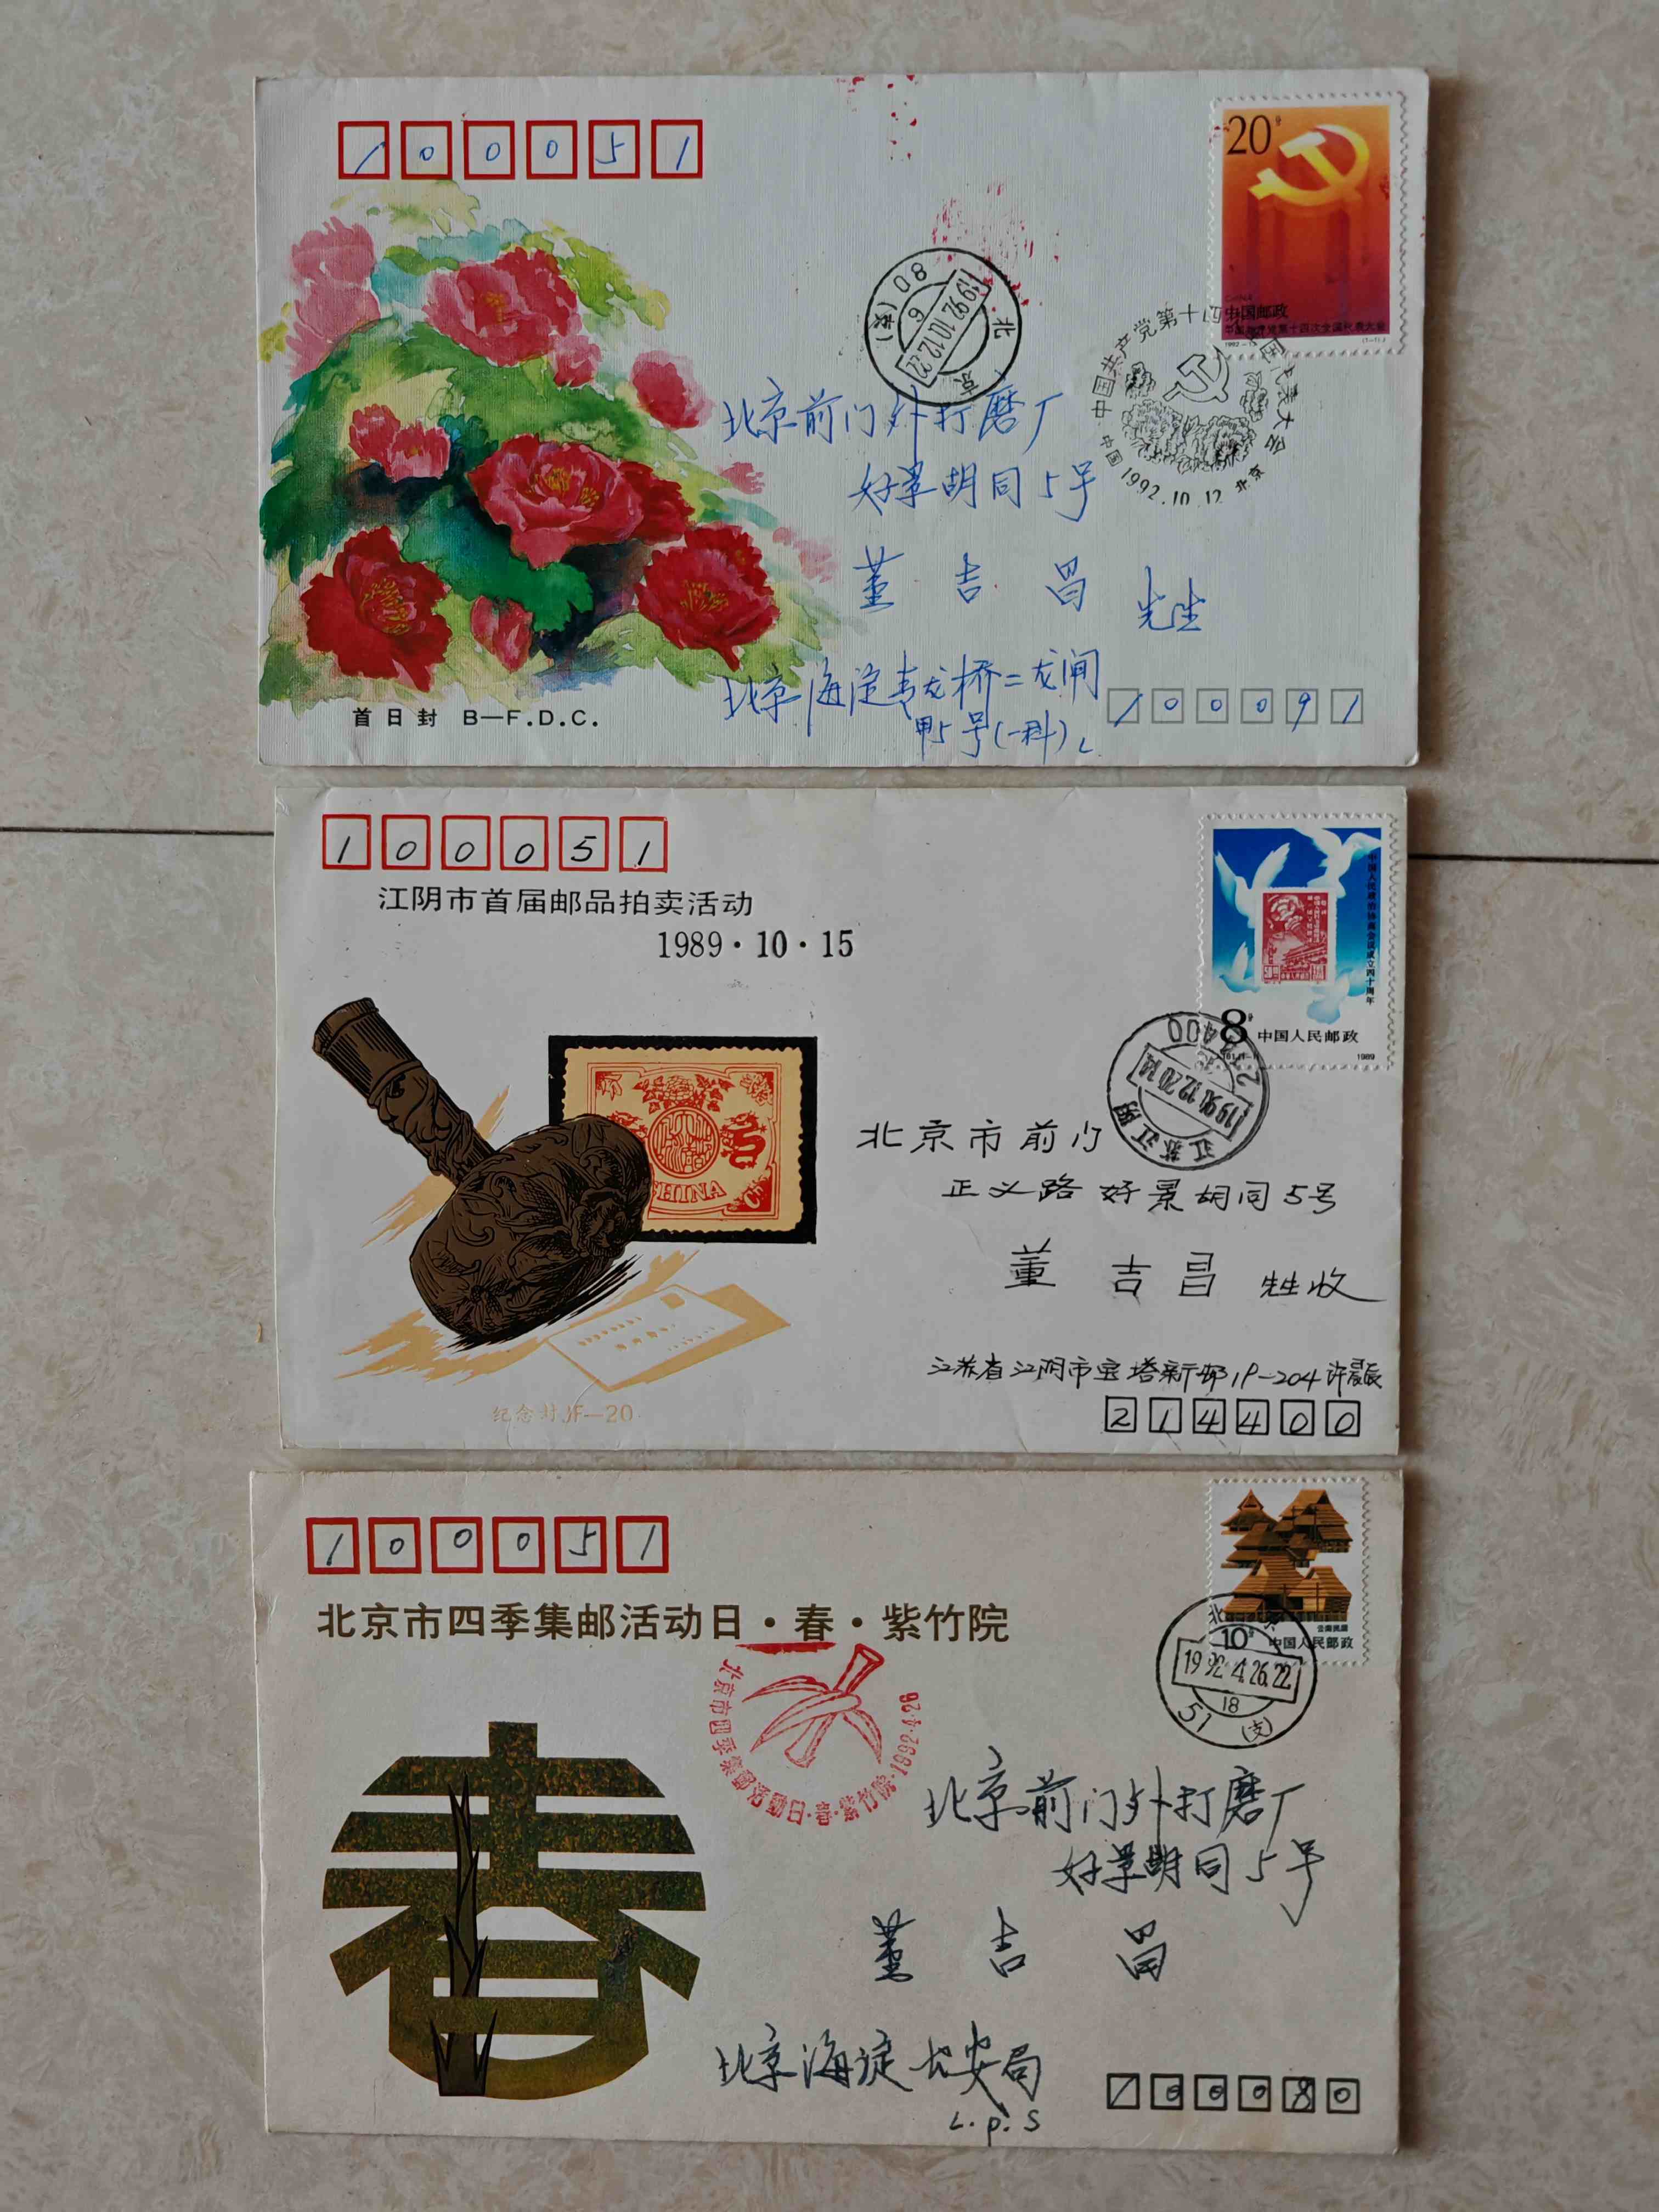 100051
20分
中国邮政
中国共产党第十四次全国代表大会
北京
1992.10.12.22
6
(支)80
中国共产党第十四次全国代表大会
中国 1992.10.12 北京
北京前门外打磨厂
好景胡同5号
董吉昌 先生
北京海淀青龙桥二龙闸
甲5号(一科)L
首日封 B—F.D.C.
100091
100051
江阴市首届邮品拍卖活动
1989·10·15
中国人民政治协商会议成立四十周年
8分 中国人民邮政
1989
214400
江苏江阴
CHINA
北京市前门
正义路好景胡同5号
董吉昌 先生收
江苏省江阴市宝塔新邨19-204许
纪念封JF—20
214400
100051
北京市四季集邮活动日·春·紫竹院
云南民居
10分 中国人民邮政
北京
1992.4.26.22
18
51(支)
北京市四季集邮活动日·春·紫竹院·1992·4·26
春
北京前门外打磨厂
好景胡同5号
董吉昌
北京海淀公安局
L.p.S
100080